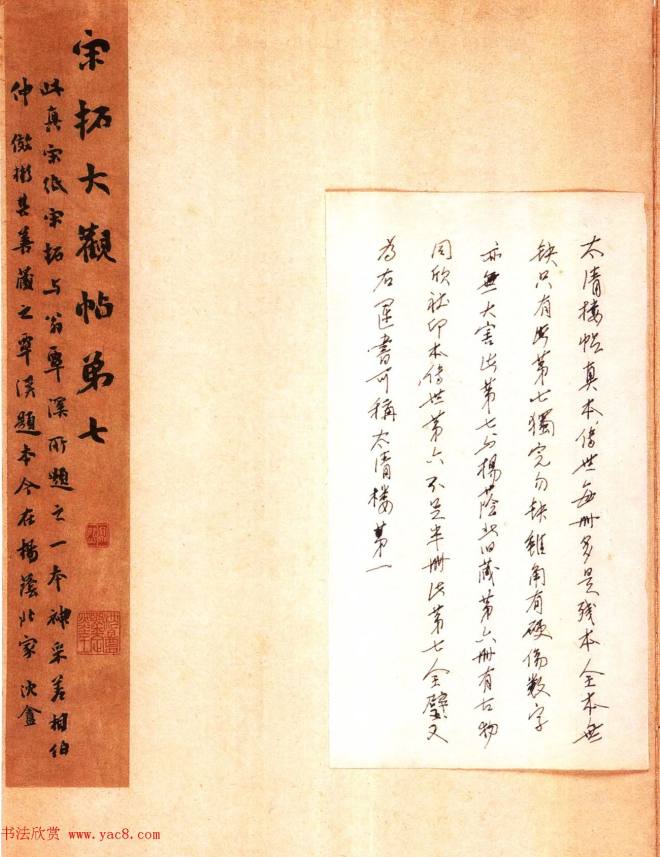 太清楼帖真本傳世每册多是残本全本無
缺只有此第七獨完勿缺雖角有硬傷数字
亦無大害此第七与楊蔭北旧藏第六册有古物
同欣社印本傳世第六不足半册此第七全璧又
為右軍書可稱太清楼第一
宋拓大觀帖弟七
此真宋纸宋拓与翁覃溪所題之一本神采差相伯
仲 其善藏之覃溪題本今在楊蔭北家
书法欣赏 www.yac8.com